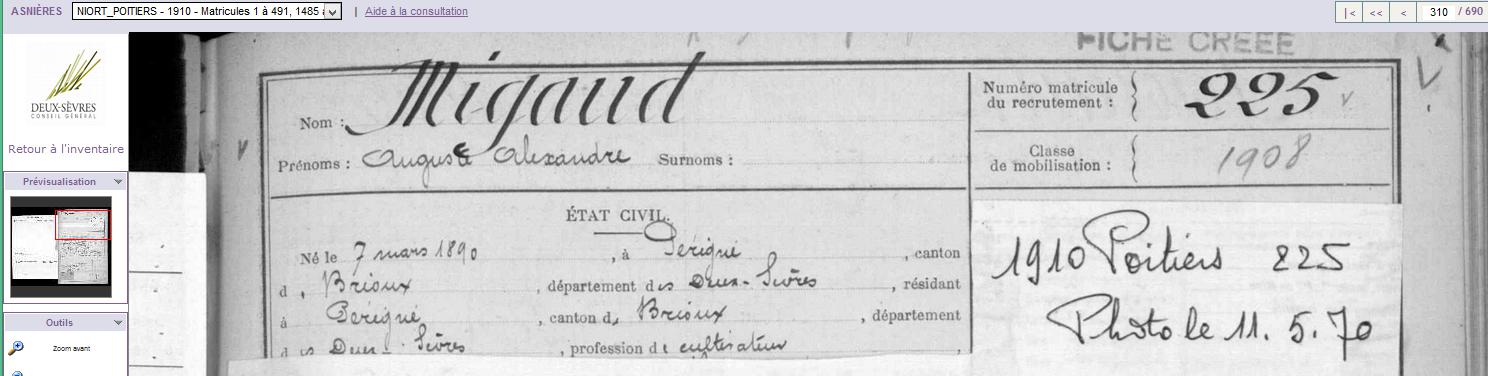 ASNIÈRES NIORT_POITIERS - 1910 - Matricules 1 à 491, 1485 | Aide à la consultation |< << < 310 / 690
DEUX-SÈVRES
CONSEIL GÉNÉRAL
Retour à l'inventaire
Prévisualisation
Outils
Zoom avant
FICHE CRÉÉE
Nom : Migaud
Prénoms : Auguste Alexandre Surnoms :
Numéro matricule
du recrutement : 225
Classe
de mobilisation : 1908
ÉTAT CIVIL.
Né le 7 mars 1890, à Périgné, canton
d, Brioux, département des Deux-Sèvres, résidant
à Périgné, canton d, Brioux, département
des Deux-Sèvres, profession de cultivateur,
1910 Poitiers 225
Photo le 11. 5. 70